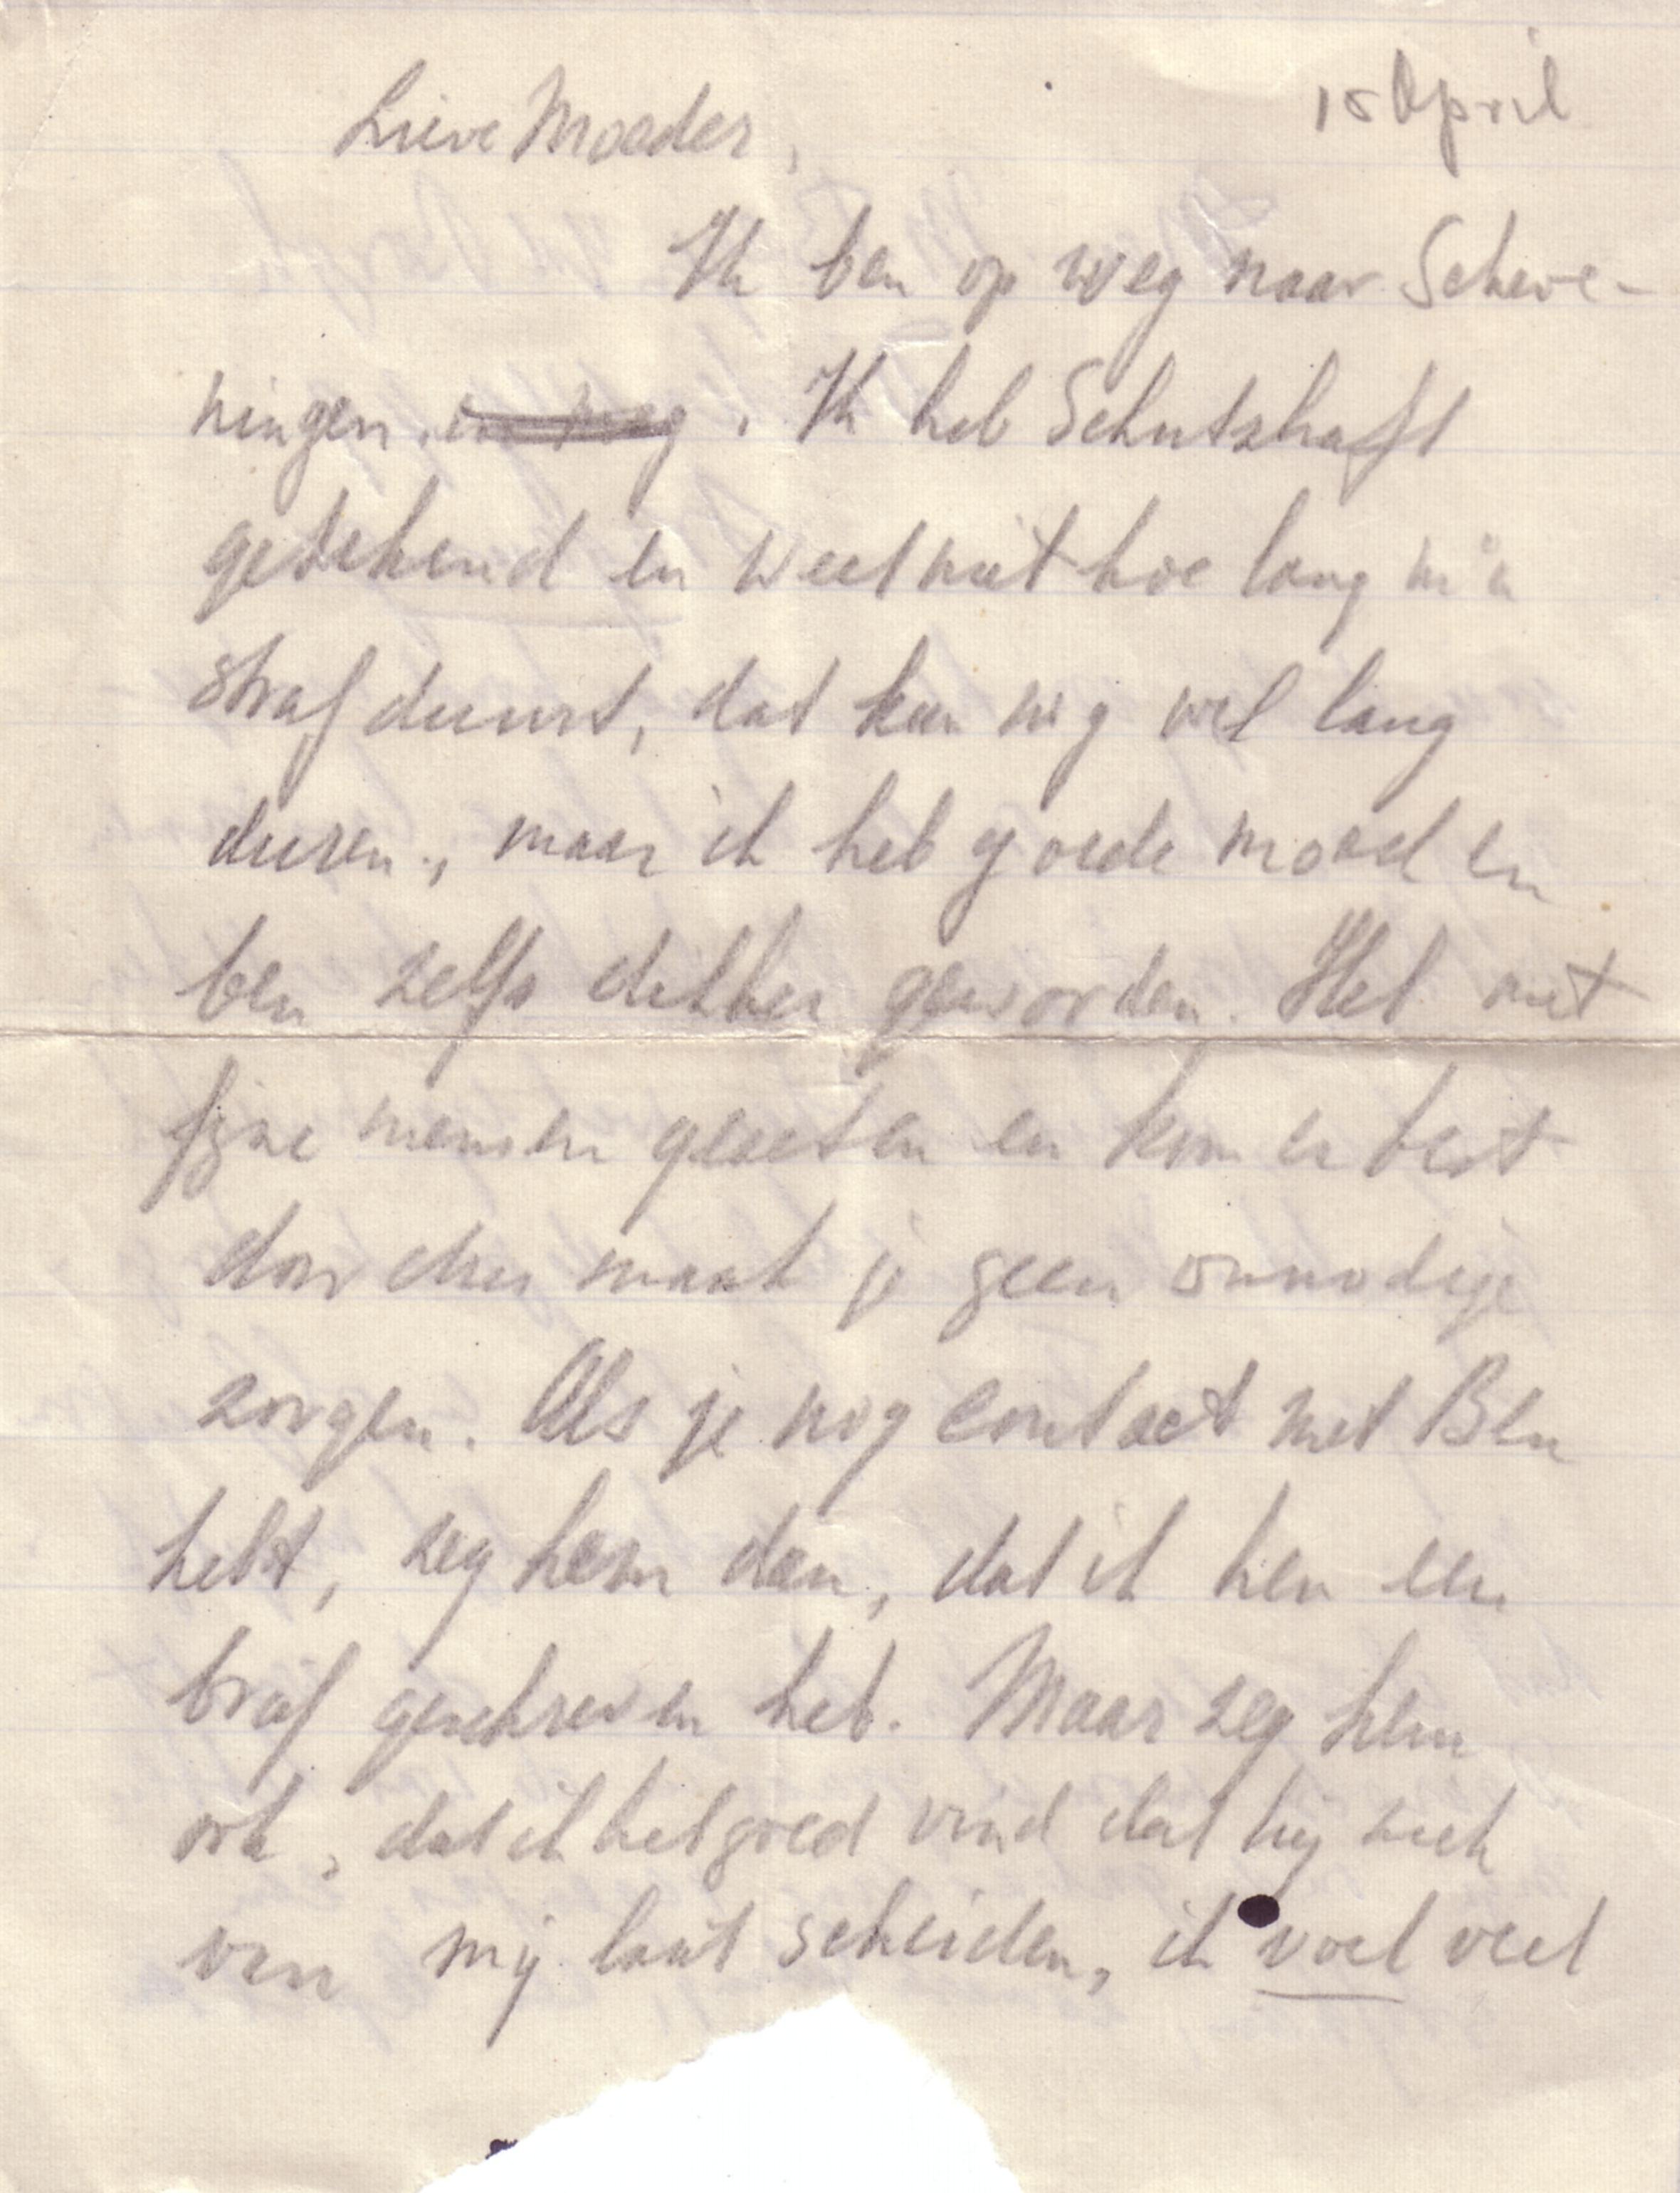 15 April
Lieve Moeder,
Ik ben op weg naar Scheve-
ningen. . Ik heb Schutzhaft
getekend en weet niet hoe lang m'n
straf duurt, dat kan nog wel lang
duren, maar ik heb goede moed en
ben zelfs dikker geworden. Heb met
fijne mensen gezeten en kom er best
door dus maak je geen onnodige
zorgen. Als je nog contact met Ben
hebt, zeg hem dan, dat ik hem een
brief geschreven heb. Maar zeg hem
ook, dat ik het goed vind dat hij zich
van mij laat scheiden, ik voel veel